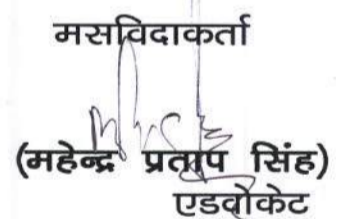 मसविदाकर्ता
(महेन्द्र प्रताप सिंह)
एडवोकेट